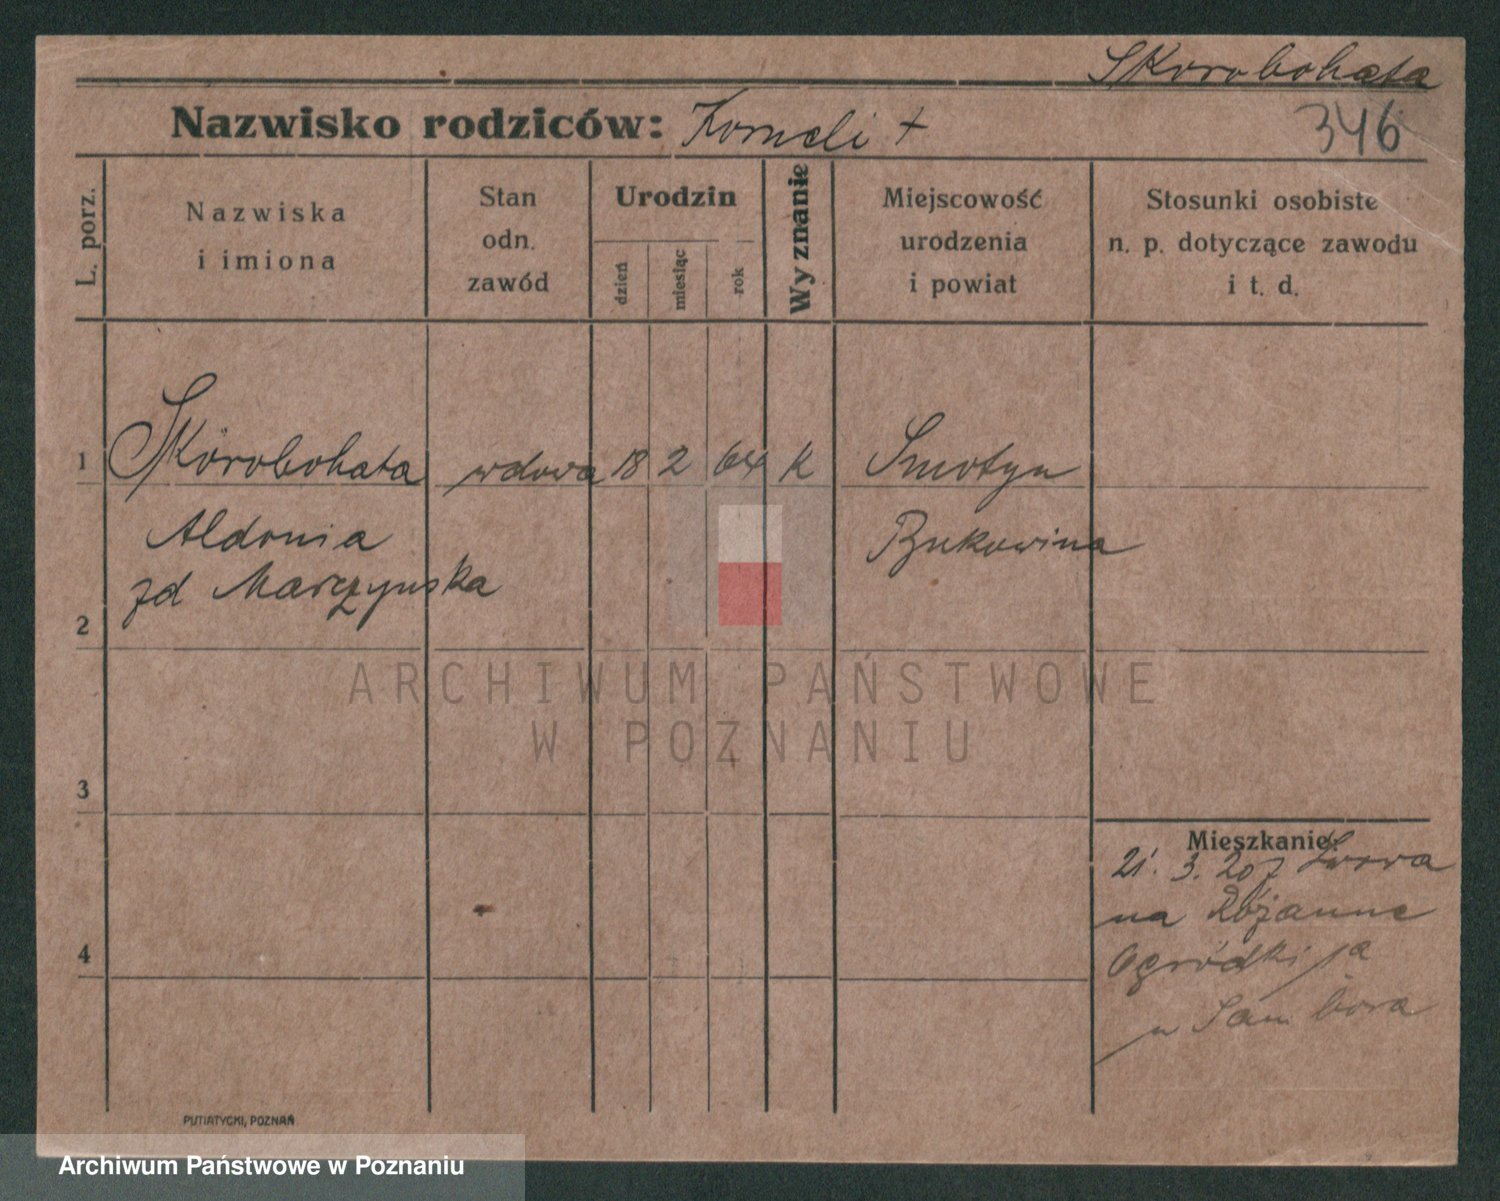 Skorobohata
Nazwisko rodziców: Korneli +
346
L. porz.
Nazwiska
i imiona
Stan
odn.
zawód
Urodzin
dzień
miesiąc
rok
Wyznanie
Miejscowość
urodzenia
i powiat
Stosunki osobiste
n. p. dotyczące zawodu
i t. d.
1 Skorobohata wdowa 18 2 64 k Smotyn
Aldonia Bukowina
zd Marczynska
2
3
4
Mieszkanie:
21. 3. 20 z Lwowa
na Różanne
Ogródki 1a
u Sambora
PUTIATYCKI, POZNAŃ
ARCHIWUM PAŃSTWOWE
W POZNANIU
Archiwum Państwowe w Poznaniu